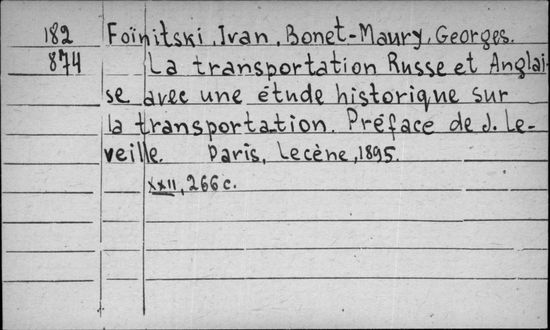 182 Foïnitski, Ivan, Bonet-Maury, Georges.
874 La transportation Russe et Anglai-
se avec une étude historique sur
la transportation. Préface de J. Le-
veille. Paris, Lecène, 1895.
XXII, 266 c.